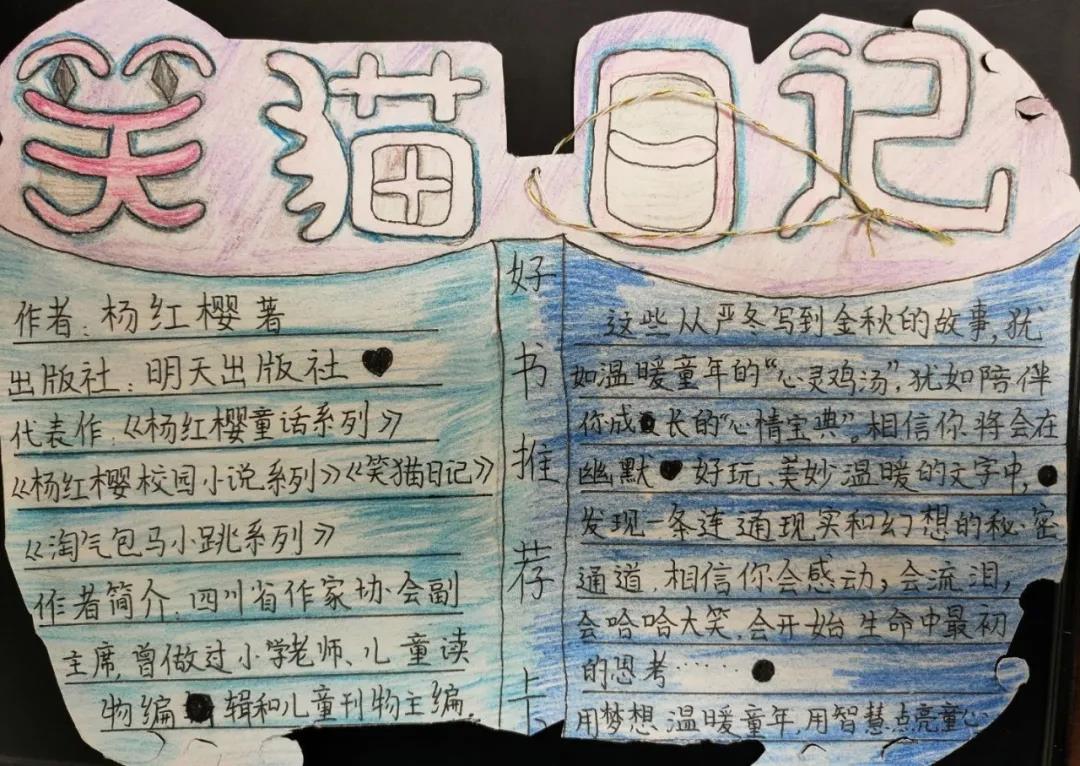 笑猫日记
作者：杨红樱著
出版社：明天出版社
代表作：《杨红樱童话系列》
《杨红樱校园小说系列》《笑猫日记》
《淘气包马小跳系列》
作者简介：四川省作家协会副
主席，曾做过小学老师、儿童读
物编辑和儿童刊物主编，
好书推荐卡
这些从严冬写到金秋的故事，犹
如温暖童年的“心灵鸡汤”，犹如陪伴
你成长的“心情宝典”。相信你将会在
幽默好玩、美妙温暖的文字中，
发现一条连通现实和幻想的秘密
通道，相信你会感动，会流泪，
会哈哈大笑，会开始生命中最初
的思考……
用梦想温暖童年，用智慧点亮童心